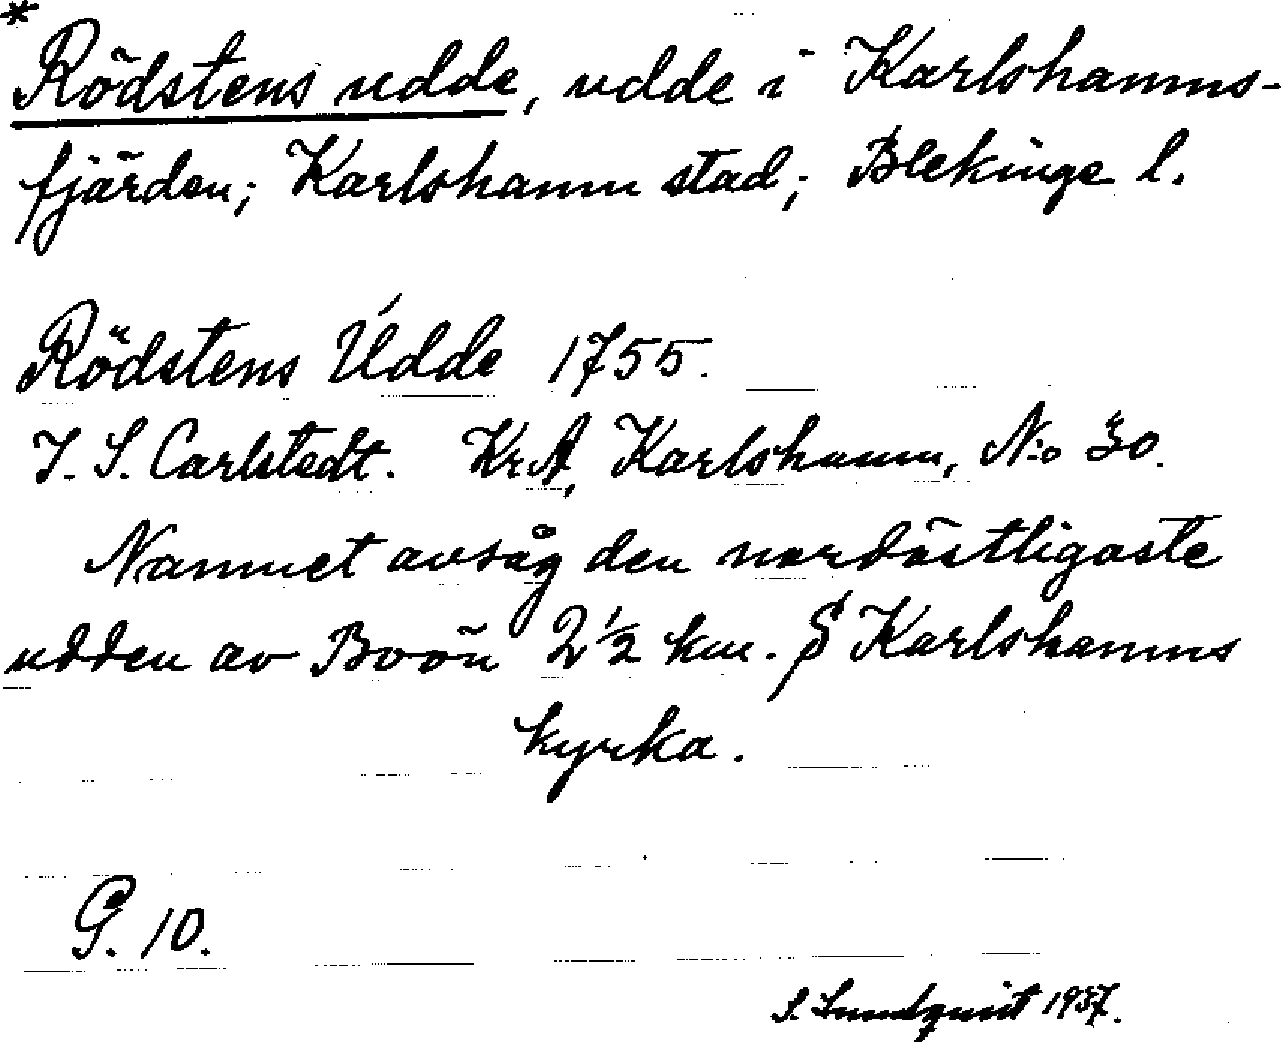 * Rödstens udde, udde i Karlshamns-
fjärden; Karlshamn stad; Blekinge l.
Rödstens Udde 1755.
J. S. Carlstedt. KrA, Karlshamn, N:o 30.
Namnet avsåg den nordöstligaste
udden av Boön 2½ km. S Karlshamns
kyrka.
G. 10.
S. Lundquist 1937.